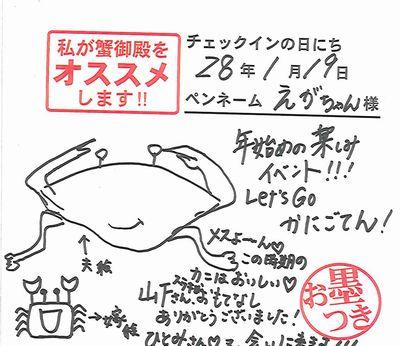 私が蟹御殿を
オススメ
します!!
チェックインの日にち
28年1月19日
ペンネーム えがちゃん様
年始めの楽しみ
イベント!!!
Let's Go
かにごてん!
メスよーん♡
この時期の
カニはおいしい♡
山下さん、おもてなし
ありがとうございました!
ひとみさん♡
お墨つき